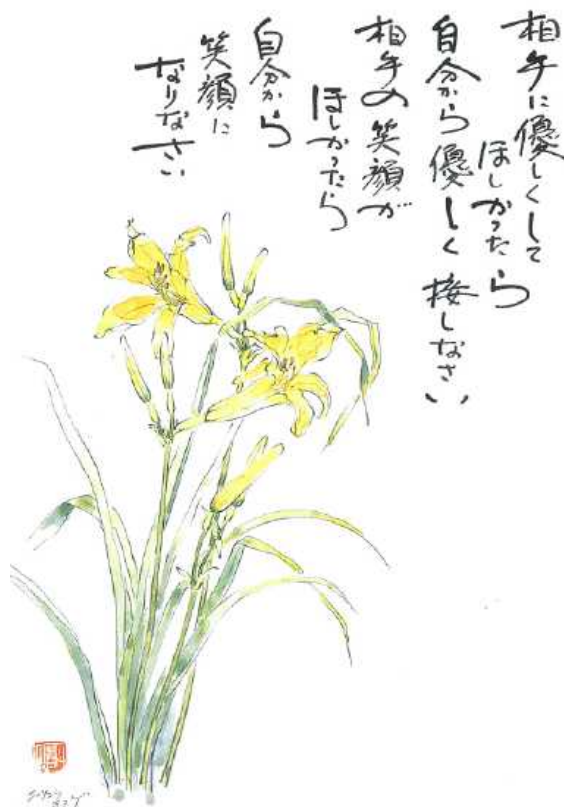 相手に優しくして
ほしかったら
自分から優しく接しなさい
相手の笑顔が
ほしかったら
自分から
笑顔に
なりなさい